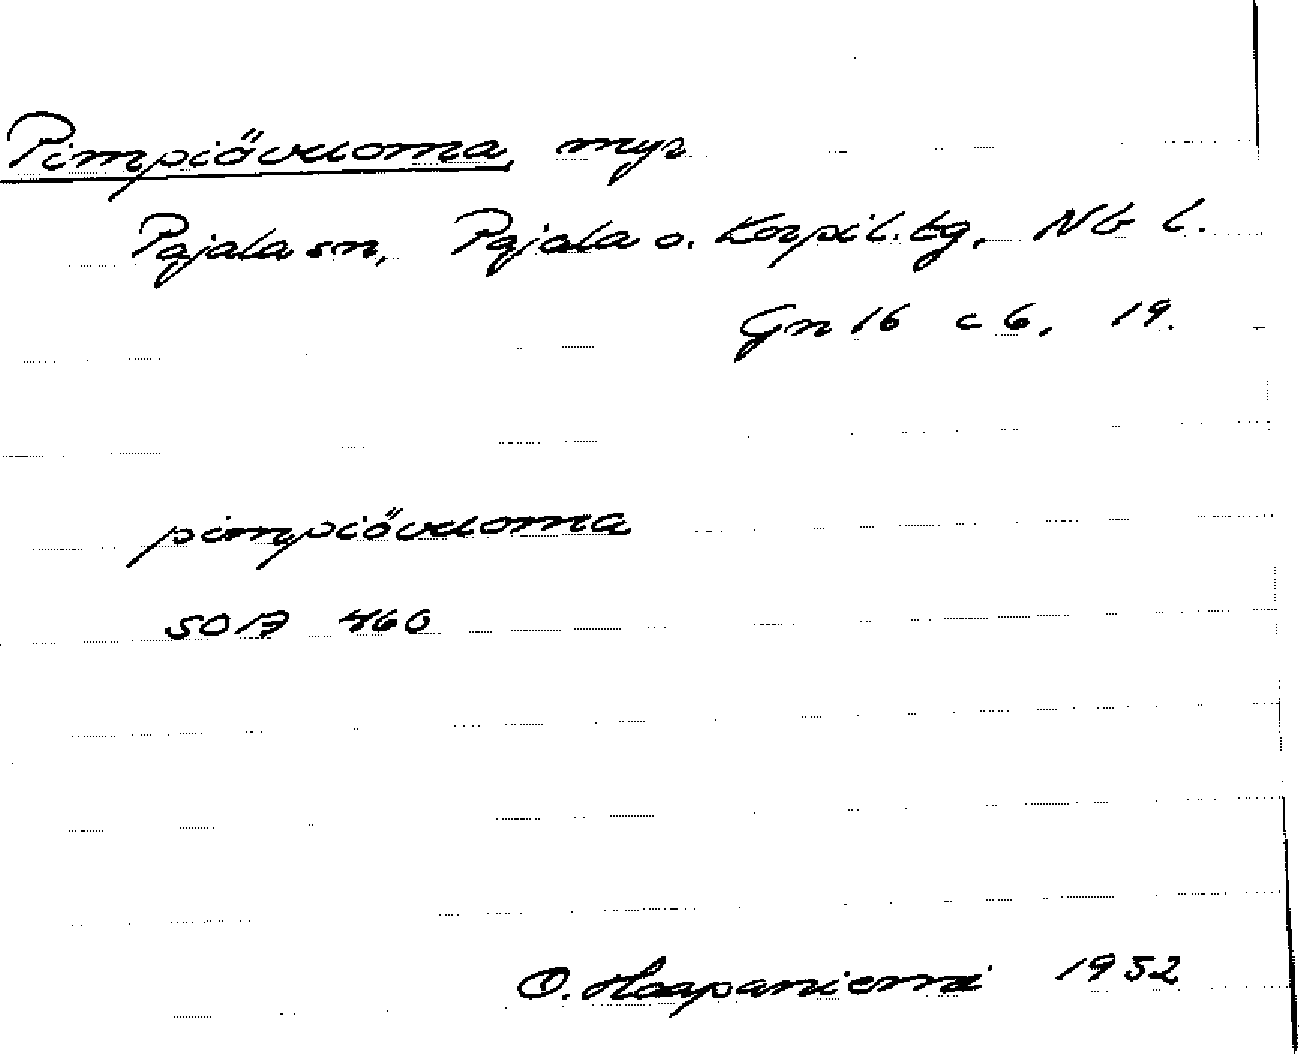 Pimpiövuoma, myr
Pajala sn, Pajala o. Korpil. tg, Nb l.
Gn 16 c 6, 19.
pimpiövuoma
SOA 460
O. Haapaniemi 1952